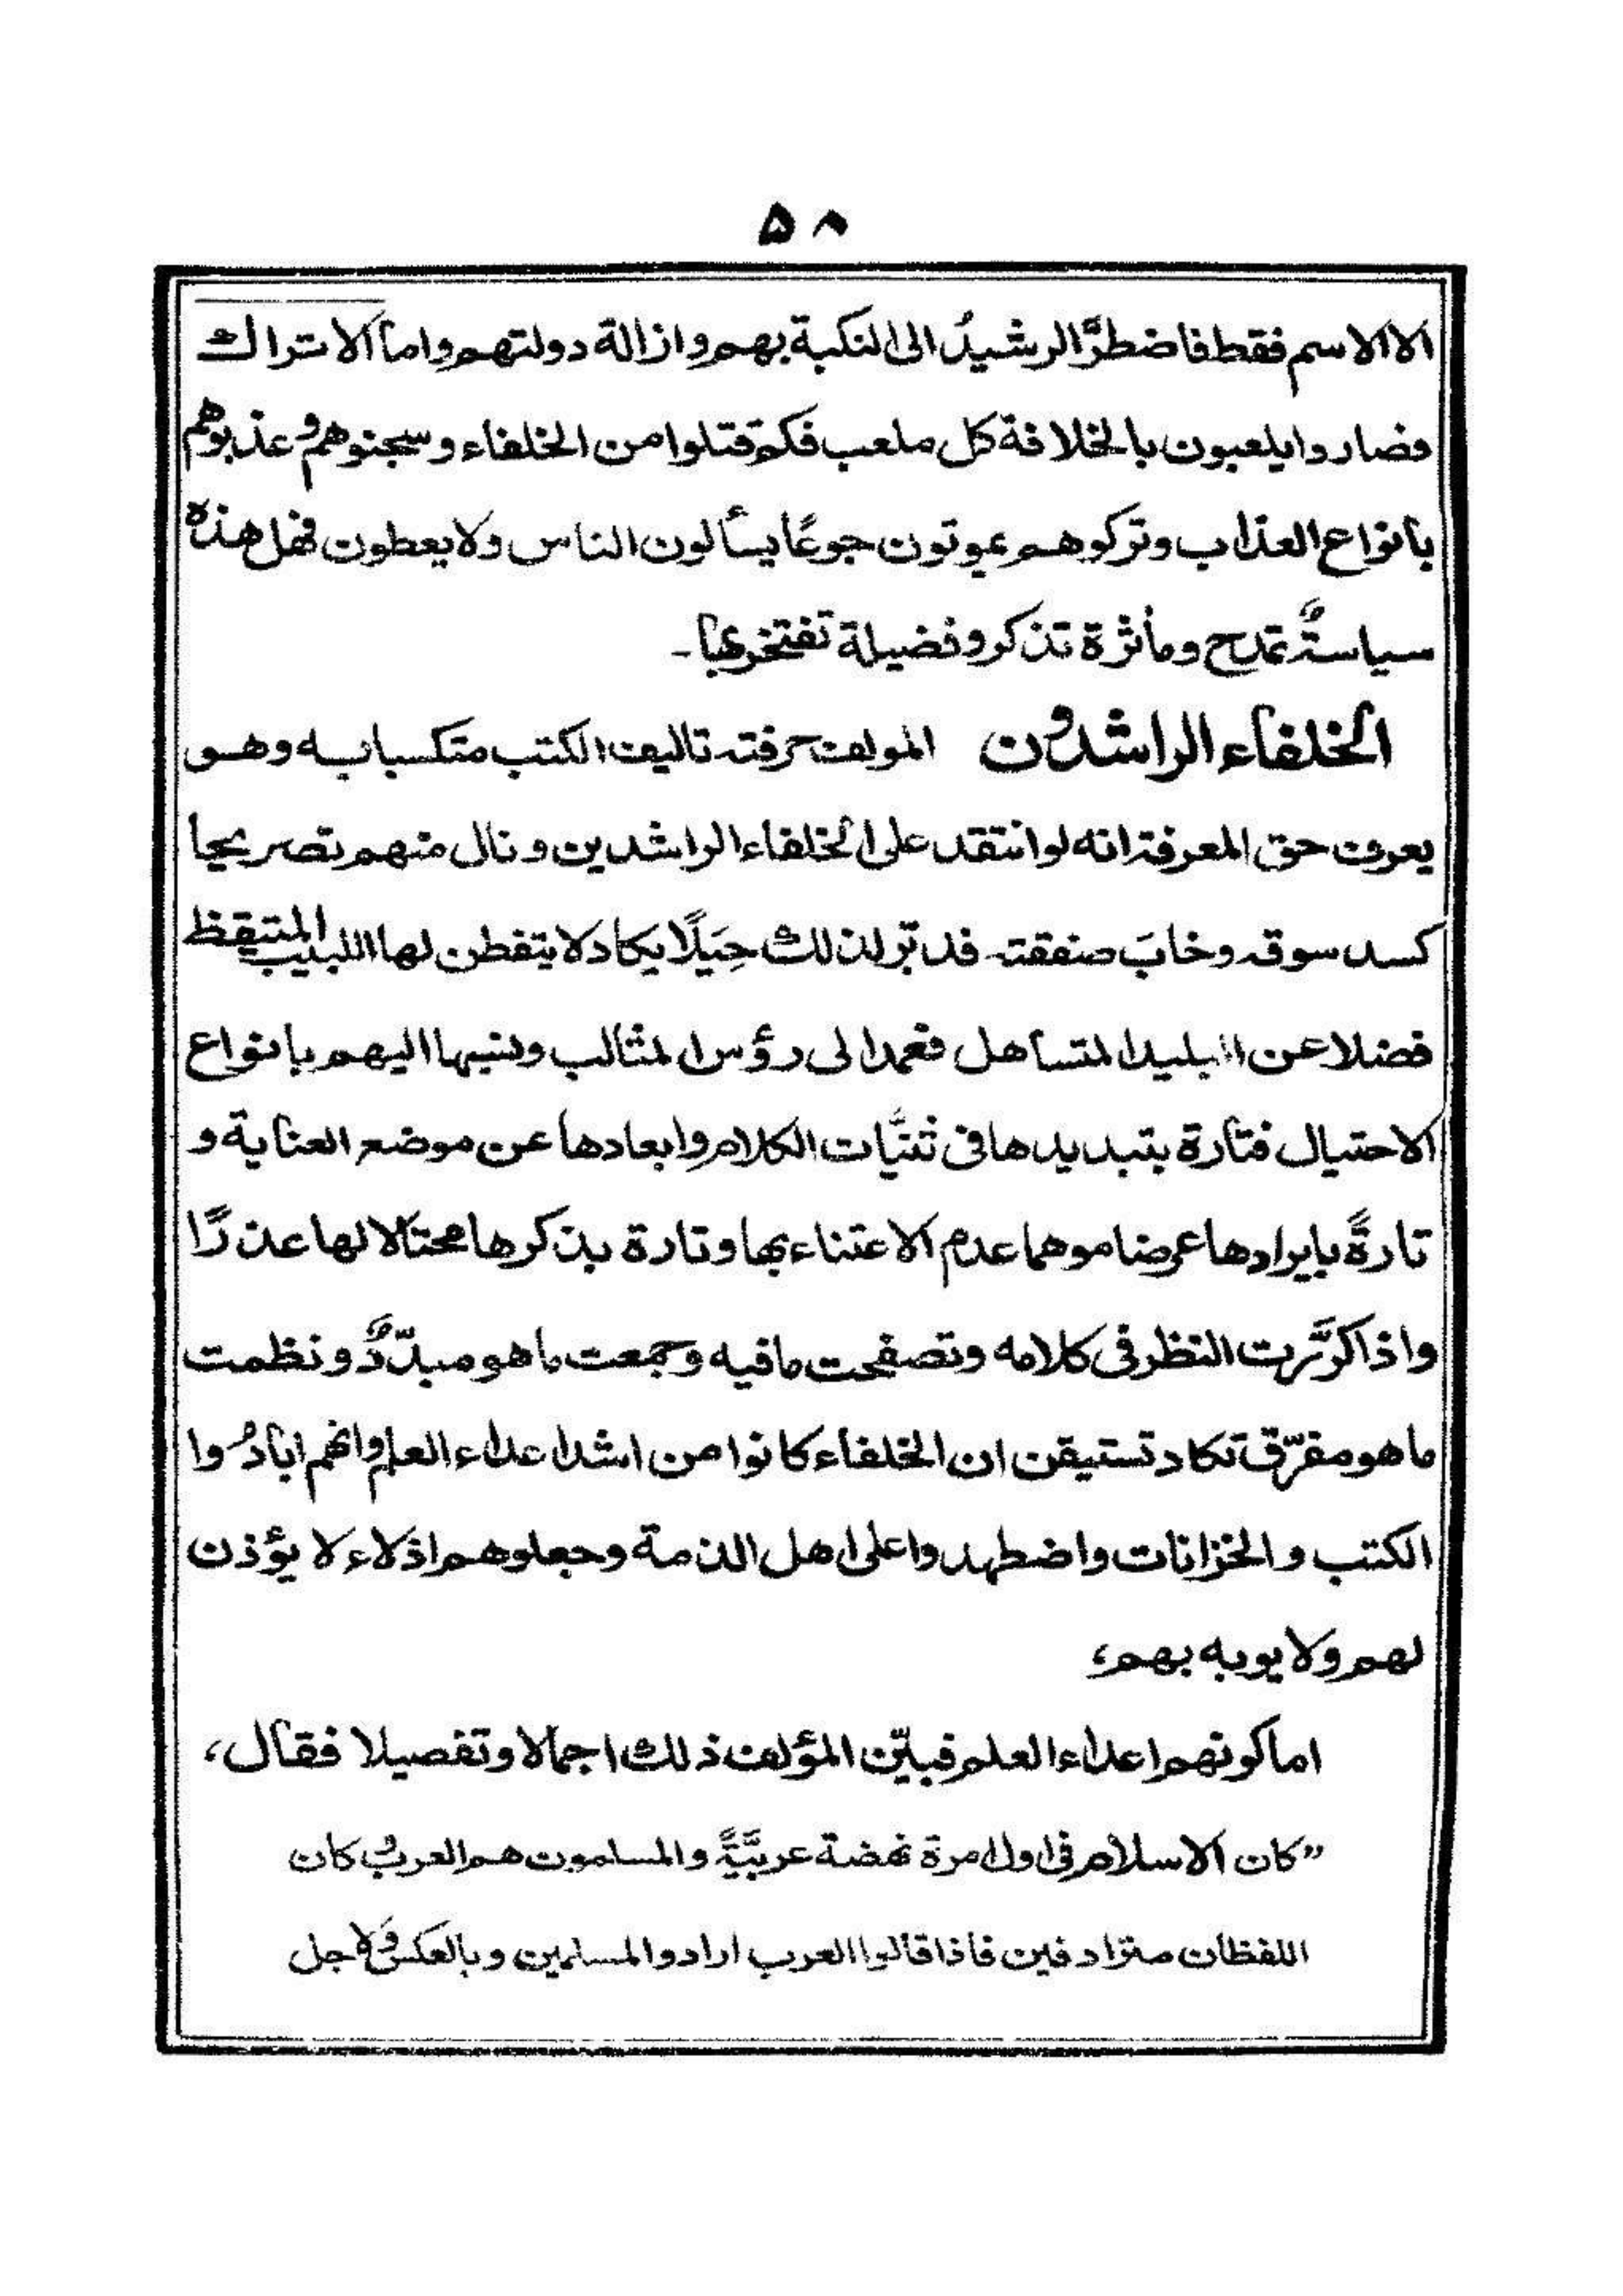 ۵۸
الا الاسم فقط فاضطرَّ الرشيدُ الى النكبة بهم وازالة دولتهم واما الاتراك
فصاروا يلعبون بالخلافة كل ملعب فكم قتلوا من الخلفاء وسجنوهم وعذبوهم
بانواع العذاب وتركوهم يموتون جوعًا يسألون الناس ولا يعطون فهل هذه
سياسةٌ تمدح ومأثرة تذكر وفضيلة تفتخر بها۔
الخلفاء الراشدون المولف حرفته تاليف الكتب متكسبا به وهو
يعرف حق المعرفة انه لو انتقد على الخلفاء الراشدين ونال منهم تصريحا
كسد سوقه وخابَ صفقته فدبّر لذلك حِيَلًا يكاد لا يتفطن لها اللبيب المتيقظ
فضلا عن البليد المتساهل فعمد الى رؤس المثالب ونسبها اليهم بانواع
الاحتيال فتارة بتبديدها فى ثنيَّات الكلام وابعادها عن موضع العناية و
تارةً بايرادها عرضا موهما عدم الاعتناء بها وتارة بذكرها محتالا لها عذرًا
واذا كرَّرت النظر فى كلامه وتصفحت مافيه وجمعت ما هو مبدّدٌ ونظمت
ما هو مفرّق تكاد تستيقن ان الخلفاء كانوا من اشد اعداء العلم وانهم ابادُوا
الكتب والخزانات واضطهدوا على اهل الذمة وجعلوهم اذلاء لا يؤذن
لهم ولا يوبه بهم،
اما كونهم اعداء العلم فبيّن المؤلف ذلك اجمالا وتفصيلا فقال،
"كان الاسلام فى اول امرة نهضة عربيَّةً والمسلمون هم العرب كان
اللفظان مترادفين فاذا قالوا العرب ارادوا المسلمين وبالعكس ولاجل